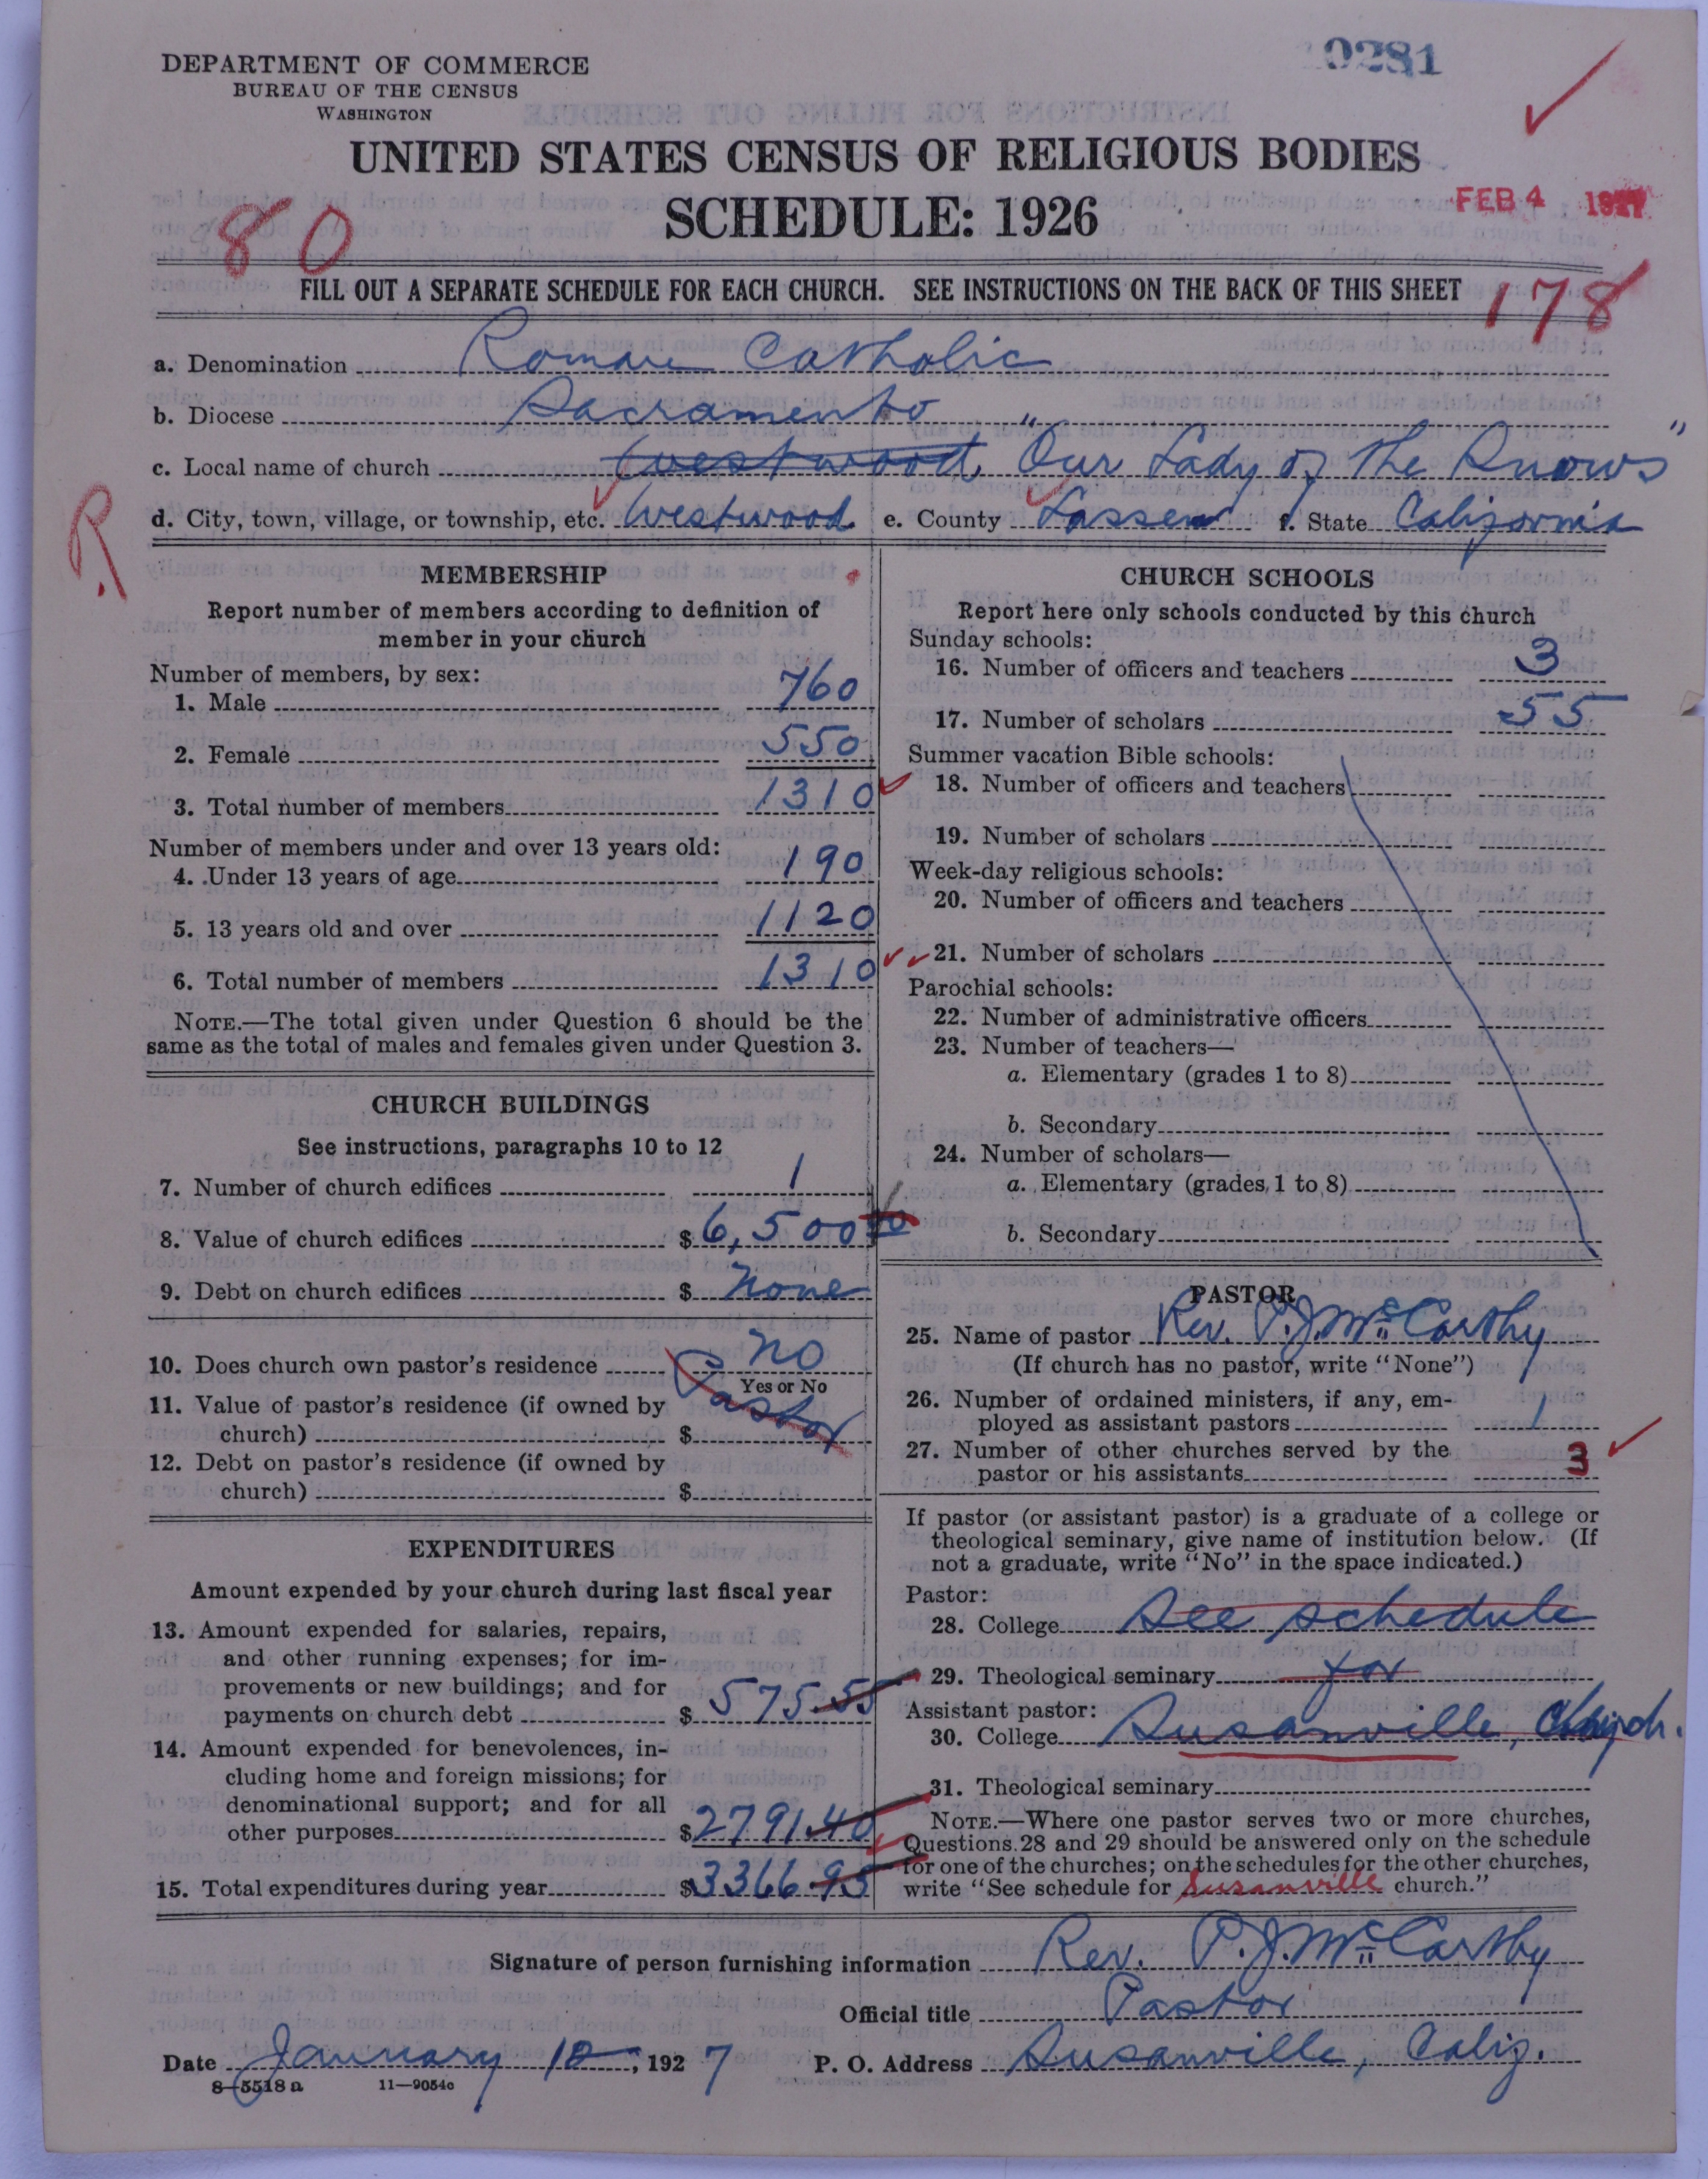 DEPARTMENT OF COMMERCE
BUREAU OF THE CENSUS
WASHINGTON
0281
UNITED STATES CENSUS OF RELIGIOUS BODIES
SCHEDULE: 1926
FEB 4 1927
80
FILL OUT A SEPARATE SCHEDULE FOR EACH CHURCH. SEE INSTRUCTIONS ON THE BACK OF THIS SHEET
178
a. Denomination Roman Catholic
b. Diocese Sacramento
c. Local name of church Westwood, "Our Lady of the Snows"
R
d. City, town, village, or township, etc. Westwood e. County Lassen f. State California
MEMBERSHIP
Report number of members according to definition of
member in your church
Number of members, by sex:
1. Male 760
2. Female 550
3. Total number of members 1310
Number of members under and over 13 years old:
4. Under 13 years of age 190
5. 13 years old and over 1120
6. Total number of members 1310
NOTE.—The total given under Question 6 should be the
same as the total of males and females given under Question 3.
CHURCH BUILDINGS
See instructions, paragraphs 10 to 12
7. Number of church edifices 1
8. Value of church edifices $6,500
9. Debt on church edifices $ none
10. Does church own pastor's residence no
Yes or No
11. Value of pastor's residence (if owned by Pastor
church) $
12. Debt on pastor's residence (if owned by
church) $
EXPENDITURES
Amount expended by your church during last fiscal year
13. Amount expended for salaries, repairs,
and other running expenses; for im-
provements or new buildings; and for
payments on church debt $575.55
14. Amount expended for benevolences, in-
cluding home and foreign missions; for
denominational support; and for all
other purposes $2791.40
15. Total expenditures during year $3366.95
CHURCH SCHOOLS
Report here only schools conducted by this church
Sunday schools:
16. Number of officers and teachers 3
17. Number of scholars 55
Summer vacation Bible schools:
18. Number of officers and teachers
19. Number of scholars
Week-day religious schools:
20. Number of officers and teachers
21. Number of scholars
Parochial schools:
22. Number of administrative officers
23. Number of teachers—
a. Elementary (grades 1 to 8)
b. Secondary
24. Number of scholars—
a. Elementary (grades 1 to 8)
b. Secondary
PASTOR
25. Name of pastor Rev. P. J. McCarthy
(If church has no pastor, write "None")
26. Number of ordained ministers, if any, em-
ployed as assistant pastors 1
27. Number of other churches served by the
pastor or his assistants 3
If pastor (or assistant pastor) is a graduate of a college or
theological seminary, give name of institution below. (If
not a graduate, write "No" in the space indicated.)
Pastor:
28. College See schedule
29. Theological seminary for
Assistant pastor:
30. College Susanville, Church.
31. Theological seminary
NOTE.—Where one pastor serves two or more churches,
Questions 28 and 29 should be answered only on the schedule
for one of the churches; on the schedules for the other churches,
write "See schedule for Susanville church."
Signature of person furnishing information Rev. P. J. McCarthy
Official title Pastor
Date January 10, 1927 P. O. Address Susanville, Calif.
8—5518 a 11—9054c